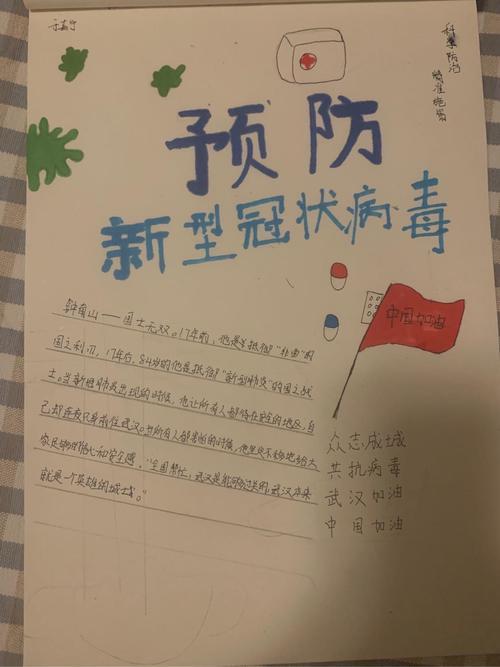 科学防治
精准施策
预防
新型冠状病毒
中国加油
钟南山——国士无双。17年前，他是抵御"非典"的
国之利刃，17年后，84岁的他是抵御"新型肺炎"的国之战
士。当新冠肺炎出现的时候，他让所有人都待在安全的地区，自
己却连夜只身前往武汉。当所有人都害怕的时候，他坚定不移地给大
家民物的信心和安全感。"全国帮忙，武汉是能够过关的，武汉本来
就是一个英雄的城市。"
众志成城
共抗病毒
武汉加油
中国加油